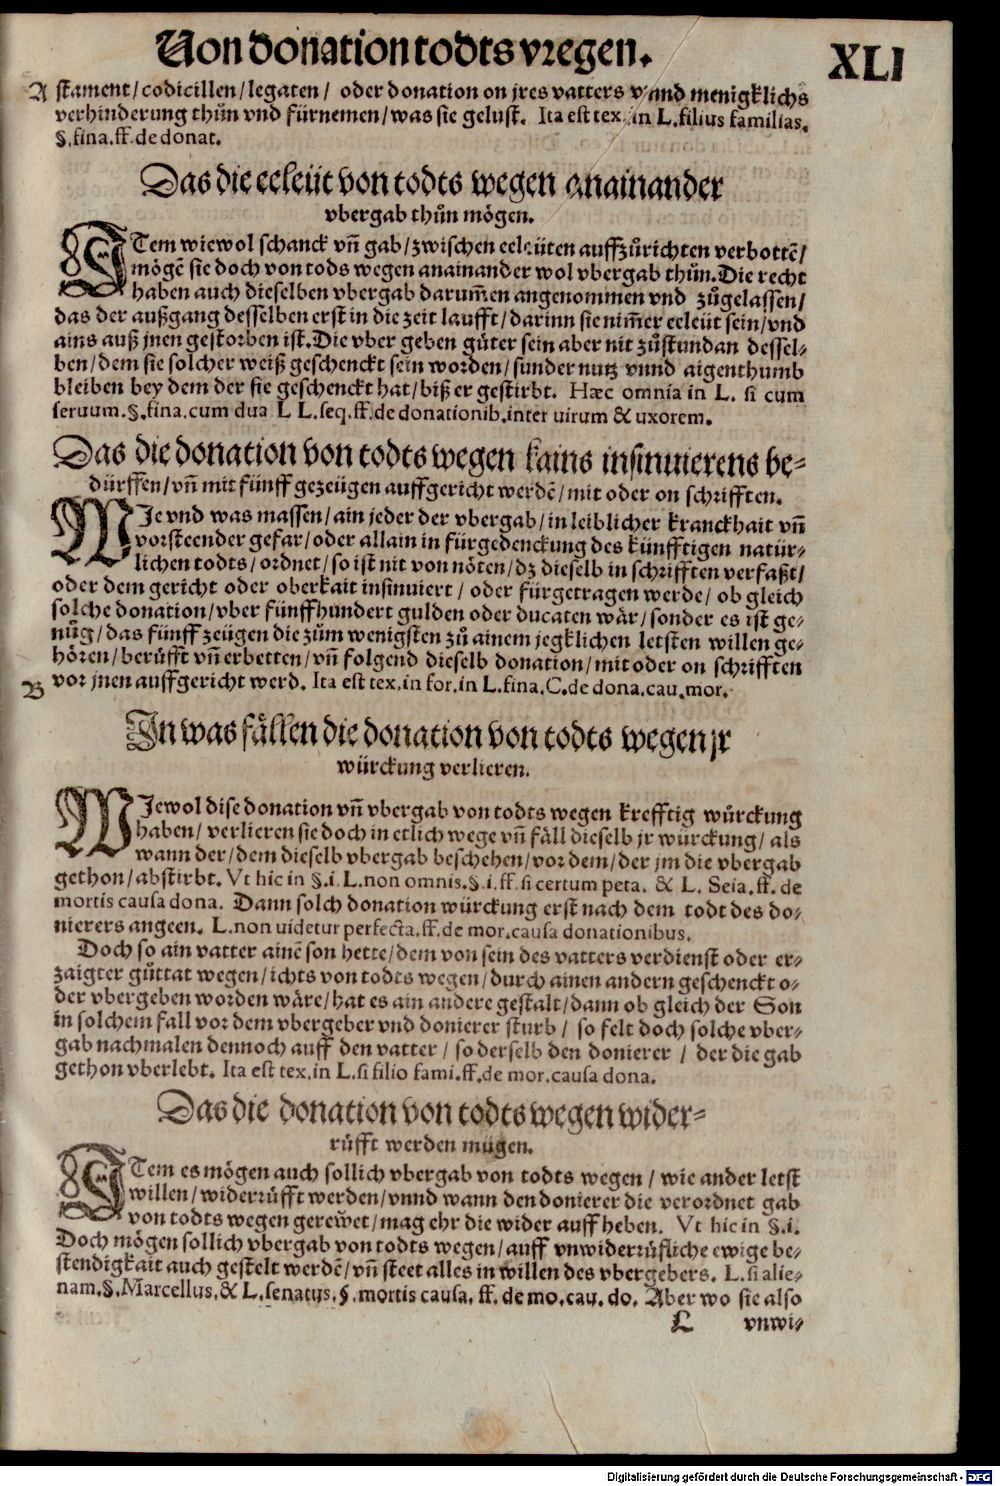 Von donation todts wegen.
XLI
A stament/ codicillen/ legaten/ oder donation on jres vatters vnnd menigklichs
verhinderung thůn vnd fürnemen/ was sie gelust. Ita est tex. in L. filius familias.
§. fina. ff. de donat.
Das die eeleüt von todts wegen anainander
vbergab thůn mögen.
ITem wiewol schanck vñ gab/ zwischen eeleüten auffzůrichten verbottē/
mögē sie doch von tods wegen anainander wol vbergab thůn. Die recht
haben auch dieselben vbergab darum̃en angenommen vnd zůgelassen/
das der außgang desselben erst in die zeit laufft/ darinn sie nim̃er eeleüt sein/ vnd
ains auß jnen gestorben ist. Die vber geben gůter sein aber nit zůstundan dessel-
ben/ dem sie solcher weiß geschenckt sein worden/ sunder nutz vnnd aigenthumb
bleiben bey dem der sie geschenckt hat/ biß er gestirbt. Hæc omnia in L. si cum
seruum. §. fina. cum dua L L. seq. ff. de donationib. inter uirum & uxorem.
Das die donation von todts wegen kains insinuierens be-
dürffen/ vñ mit fünff gezeügen auffgericht werdē/ mit oder on schrifften.
WJe vnd was massen/ ain jeder der vbergab/ in leiblicher kranckhait vñ
vorsteender gefar/ oder allain in fürgedenckung des künfftigen natür-
lichen todts/ ordnet/ so ist nit von nöten/ dz dieselb in schrifften verfaßt/
oder dem gericht oder oberkait insinuiert/ oder fürgetragen werde/ ob gleich
solche donation/ vber fünffhundert gulden oder ducaten wär/ sonder es ist ge-
nůg/ das fünff zeügen die zům wenigsten zů ainem jegklichen letsten willen ge-
hören/ berůfft vñ erbetten/ vñ folgend dieselb donation/ mit oder on schrifften
B vor jnen auffgericht werd. Ita est tex. in for. in L. fina. C. de dona. cau. mor.
In was fällen die donation von todts wegen jr
würckung verlieren.
WJewol dise donation vñ vbergab von todts wegen krefftig würckung
haben/ verlieren sie doch in etlich wege vñ fäll dieselb jr würckung/ als
wann der/ dem dieselb vbergab beschehen/ vor dem/ der jm die vbergab
gethon/ abstirbt. Vt hic in §. i. L. non omnis. §. i. ff. si certum peta. & L. Seia. ff. de
mortis causa dona. Dann solch donation würckung erst nach dem todt des do-
nierers angeen. L. non uidetur perfecta. ff. de mor. causa donationibus.
Doch so ain vatter ainē son hette/ dem von sein des vatters verdienst oder er-
zaigter gůttat wegen/ ichts von todts wegen/ durch ainen andern geschenckt o-
der vbergeben worden wäre/ hat es ain andere gestalt/ dann ob gleich der Son
in solchem fall vor dem vbergeber vnd donierer sturb/ so felt doch solche vber-
gab nachmalen dennoch auff den vatter/ so derselb den donierer/ der die gab
gethon vberlebt. Ita est tex. in L. si filio fami. ff. de mor. causa dona.
Das die donation von todts wegen wider-
růfft werden mügen.
ITem es mögen auch sollich vbergab von todts wegen/ wie ander letst
willen/ widerrůfft werden/ vnnd wann den donierer die verordnet gab
von todts wegen gerewet/ mag ehr die wider auff heben. Vt hic in §. i.
Doch mögen sollich vbergab von todts wegen/ auff vnwiderrůfliche ewige be-
stendigkait auch gestelt werdē/ vñ steet alles in willen des vbergebers. L. si alie-
nam. §. Marcellus, & L. senatus. §. mortis causa. ff. de mo. cau. do. Aber wo sie also
L vnwi-
Digitalisierung gefördert durch die Deutsche Forschungsgemeinschaft - DFG